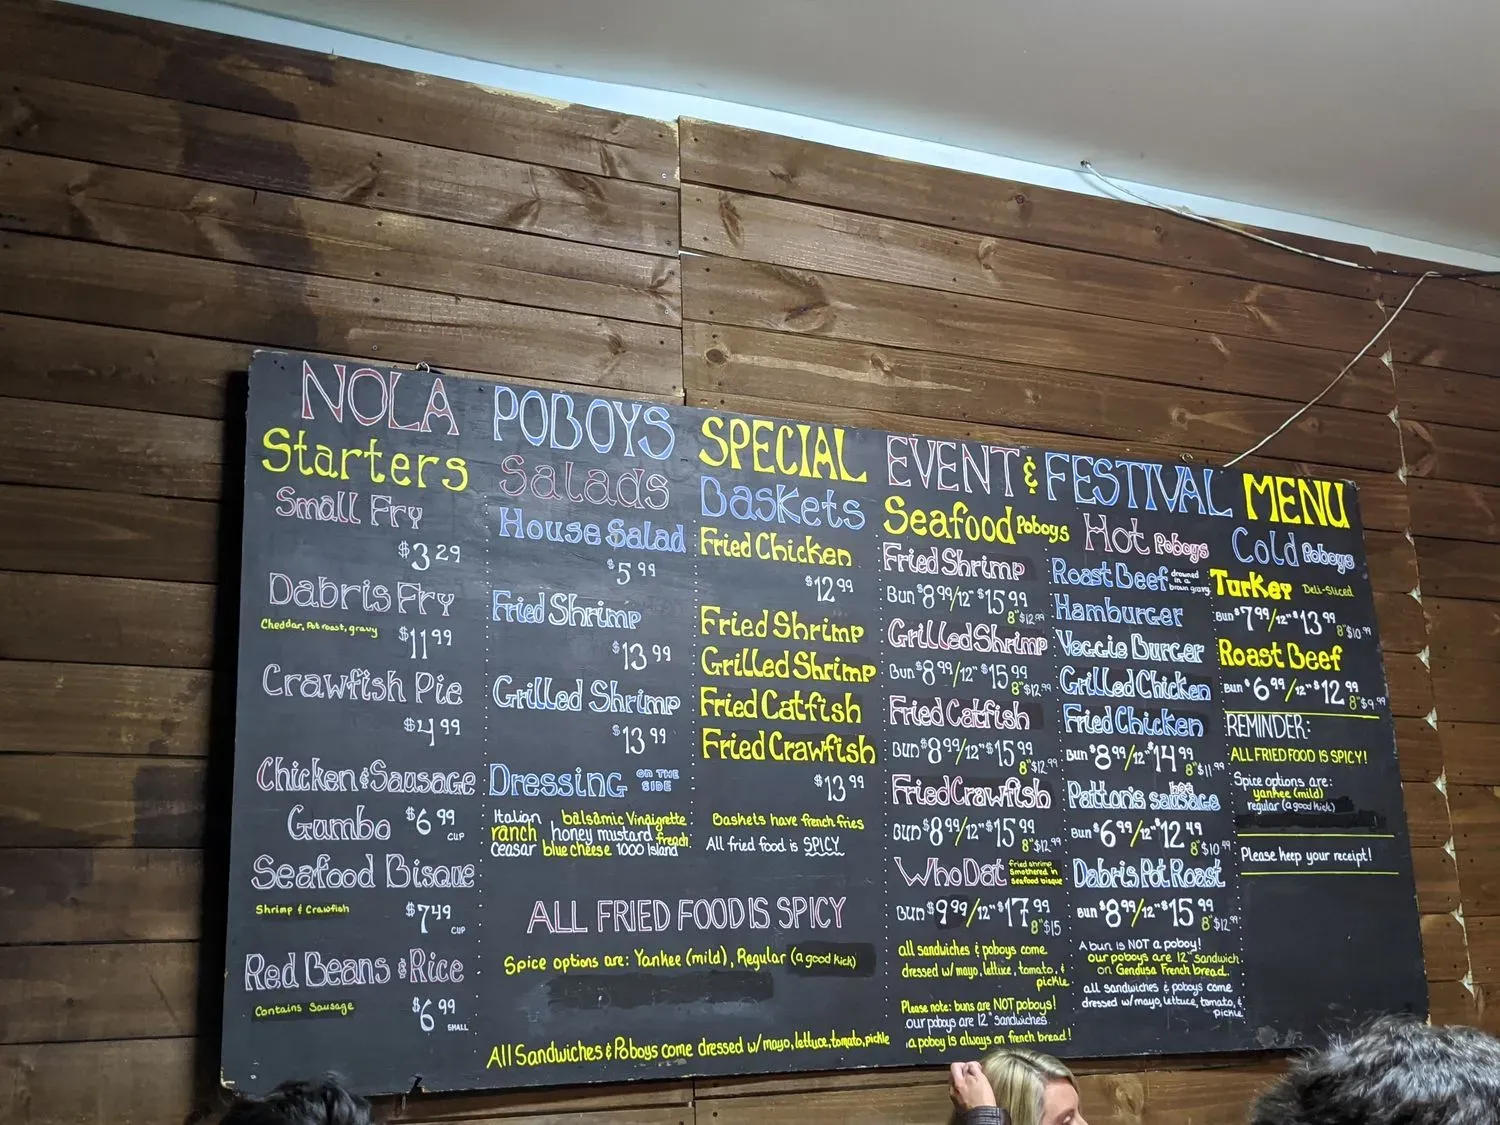 NOLA POBOYS SPECIAL EVENT & FESTIVAL MENU
Starters
Small Fry
$3 29
Dabris Fry
Cheddar, Pot roast, gravy
$11 99
Crawfish Pie
$4 99
Chicken & Sausage
Gumbo $6 99 CUP
Seafood Bisque
Shrimp & Crawfish
$7 49 CUP
Red Beans & Rice
Contains Sausage
$6 99 SMALL
Salads
House Salad
$5 99
Fried Shrimp
$13 99
Grilled Shrimp
$13 99
Dressing ON THE SIDE
Italian balsamic Vinaigrette
ranch honey mustard french
ceasar blue cheese 1000 Island
Baskets
Fried Chicken
$12 99
Fried Shrimp
Grilled Shrimp
Fried Catfish
Fried Crawfish
$13 99
Baskets have french fries
All fried food is SPICY
ALL FRIED FOOD IS SPICY
Spice options are: Yankee (mild), Regular (a good kick)
All Sandwiches & Poboys come dressed w/ mayo, lettuce, tomato, pickle
Seafood Poboys
Fried Shrimp
Bun $8 99/12" $15 99
8" $12.99
Grilled Shrimp
Bun $8 99/12" $15 99
8" $12.99
Fried Catfish
Bun $8 99/12" $15 99
8" $12.99
Fried Crawfish
Bun $8 99/12" $15 99
8" $12.99
Who Dat fried shrimp
Smothered in
seafood bisque
Bun $9 99/12" $17 99
8" $15
all sandwiches & poboys come
dressed w/ mayo, lettuce, tomato, &
pickle
Please note: buns are NOT poboys!
our poboys are 12" sandwiches
a poboy is always on french bread!
Hot Poboys
Roast Beef drowned
in a
brown gravy
Hamburger
Veggie Burger
Grilled Chicken
Fried Chicken
Bun $8 99/12" $14 99
8" $11.99
Patton's hot sausage
Bun $6 99/12" $12 49
8" $10.99
Dabris Pot Roast
Bun $8 99/12" $15 99
8" $12.99
A bun is NOT a poboy!
our poboys are 12" sandwich
on Gendusa French bread.
all sandwiches & poboys come
dressed w/ mayo, lettuce, tomato, &
pickle
Cold Poboys
Turkey Deli-Sliced
Bun $7 99/12" $13 99
8" $10.99
Roast Beef
Bun $6 99/12" $12 99
8" $9.99
REMINDER:
ALL FRIED FOOD IS SPICY!
Spice options are:
yankee (mild)
regular (a good kick)
Please keep your receipt!